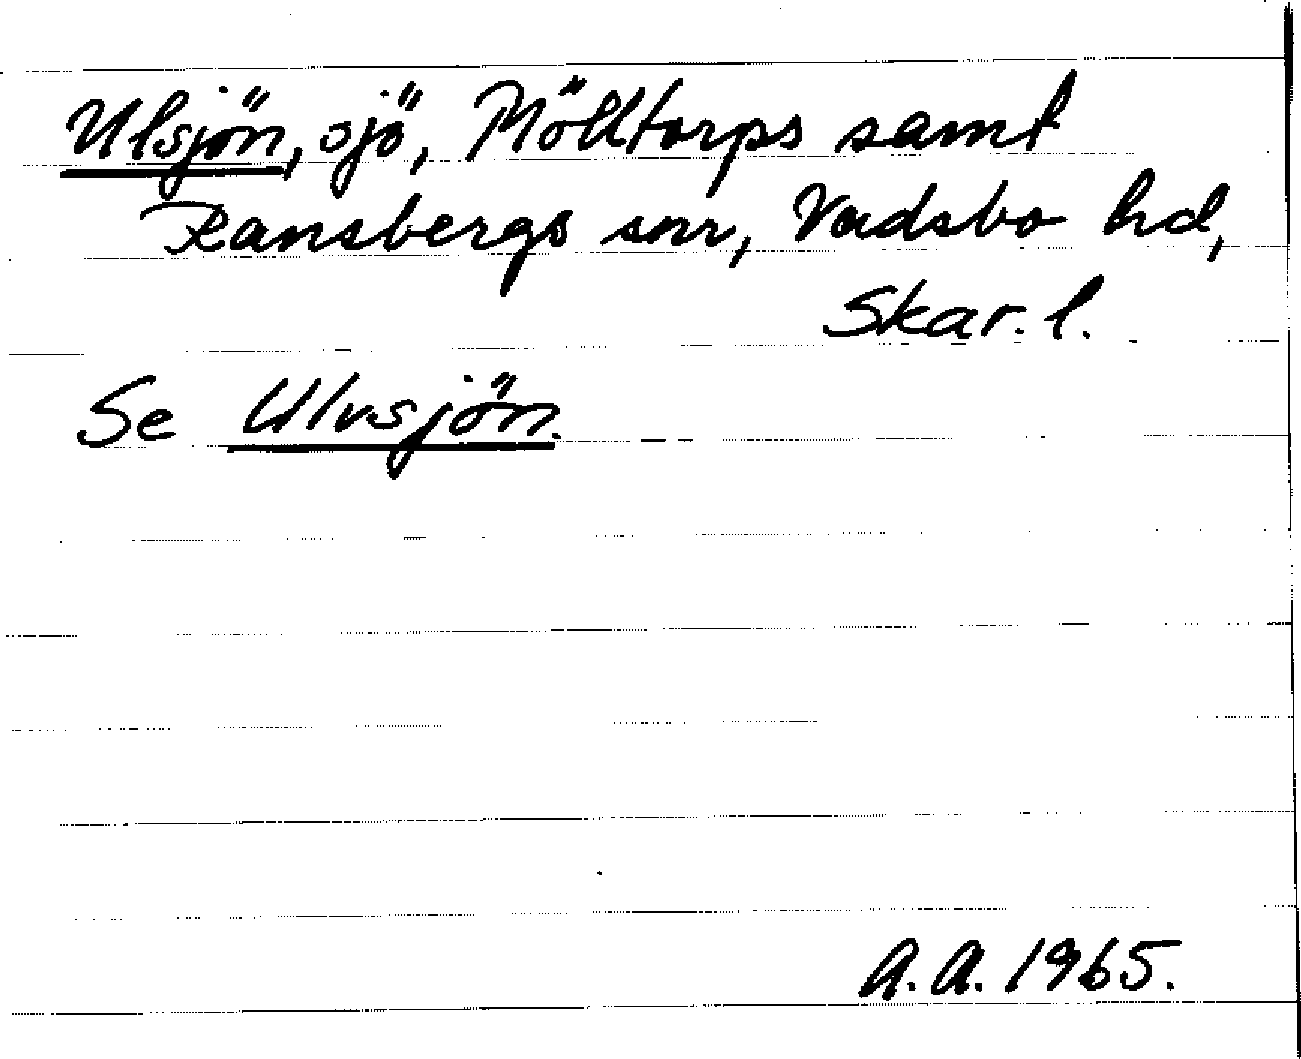 Ulsjön, sjö, Mölltorps samt
Ransbergs snr, Vadsbo hd,
Skar. l.
Se Ulvsjön.
A.A. 1965.